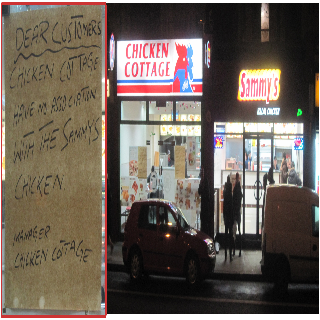 DEAR CUSTOMERS
CHICKEN COTTAGE
HAVE NO ASSOCIATION
WITH THE SAMMY'S
CHICKEN
MANAGER
CHICKEN COTTAGE
CHICKEN
COTTAGE
Sammy's